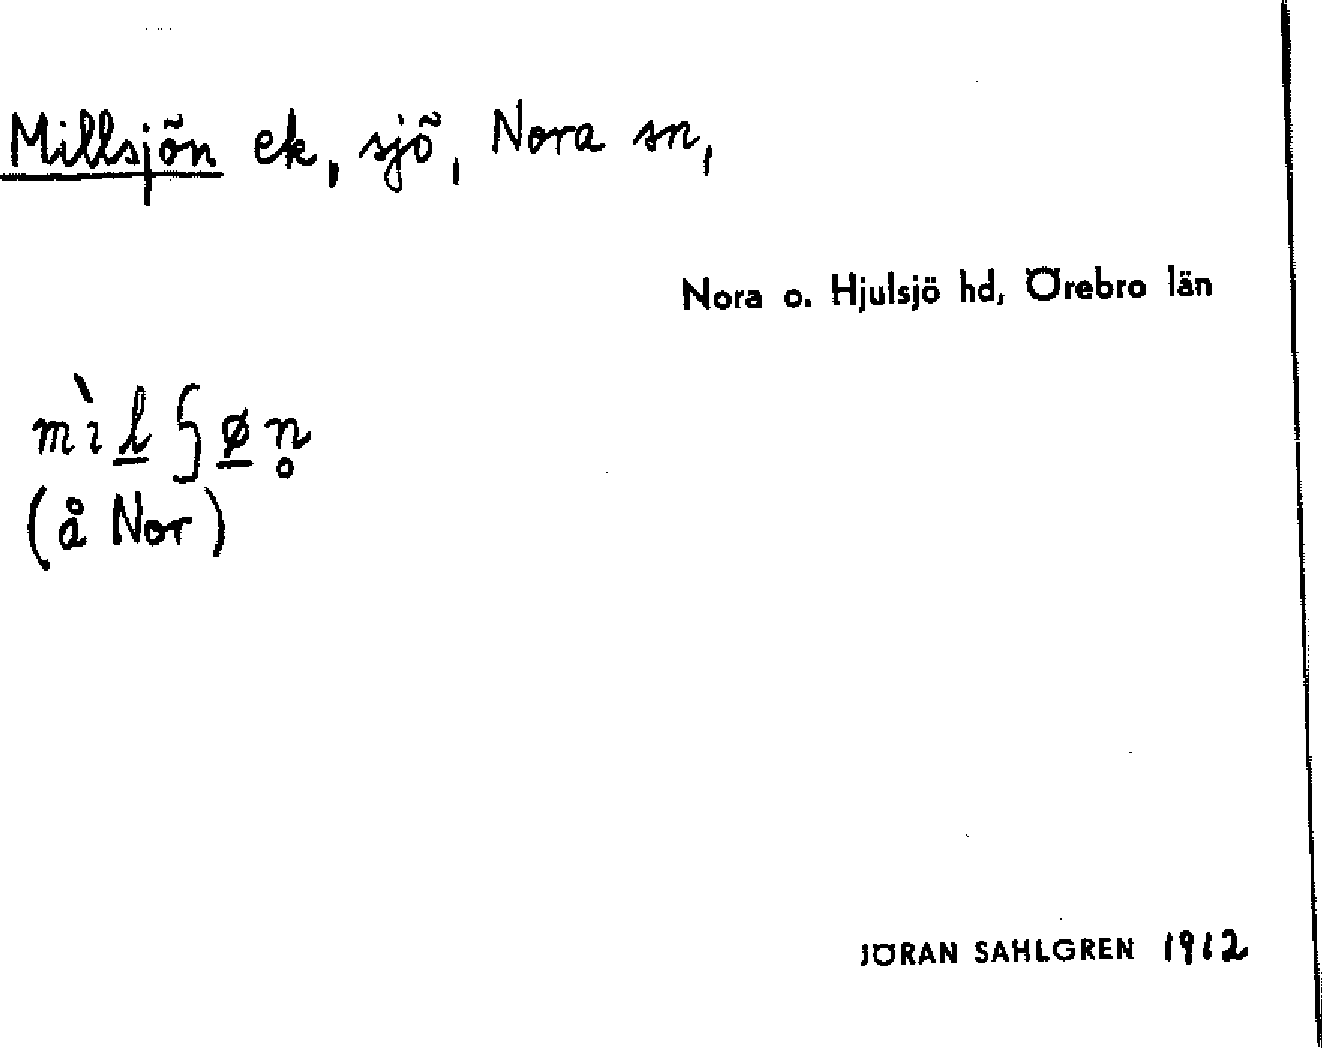 Millsjön ek, sjö, Nora sn,
Nora o. Hjulsjö hd, Örebro län
mìl̲ʃø̲n̥
(å Nor)
JÖRAN SAHLGREN 1912